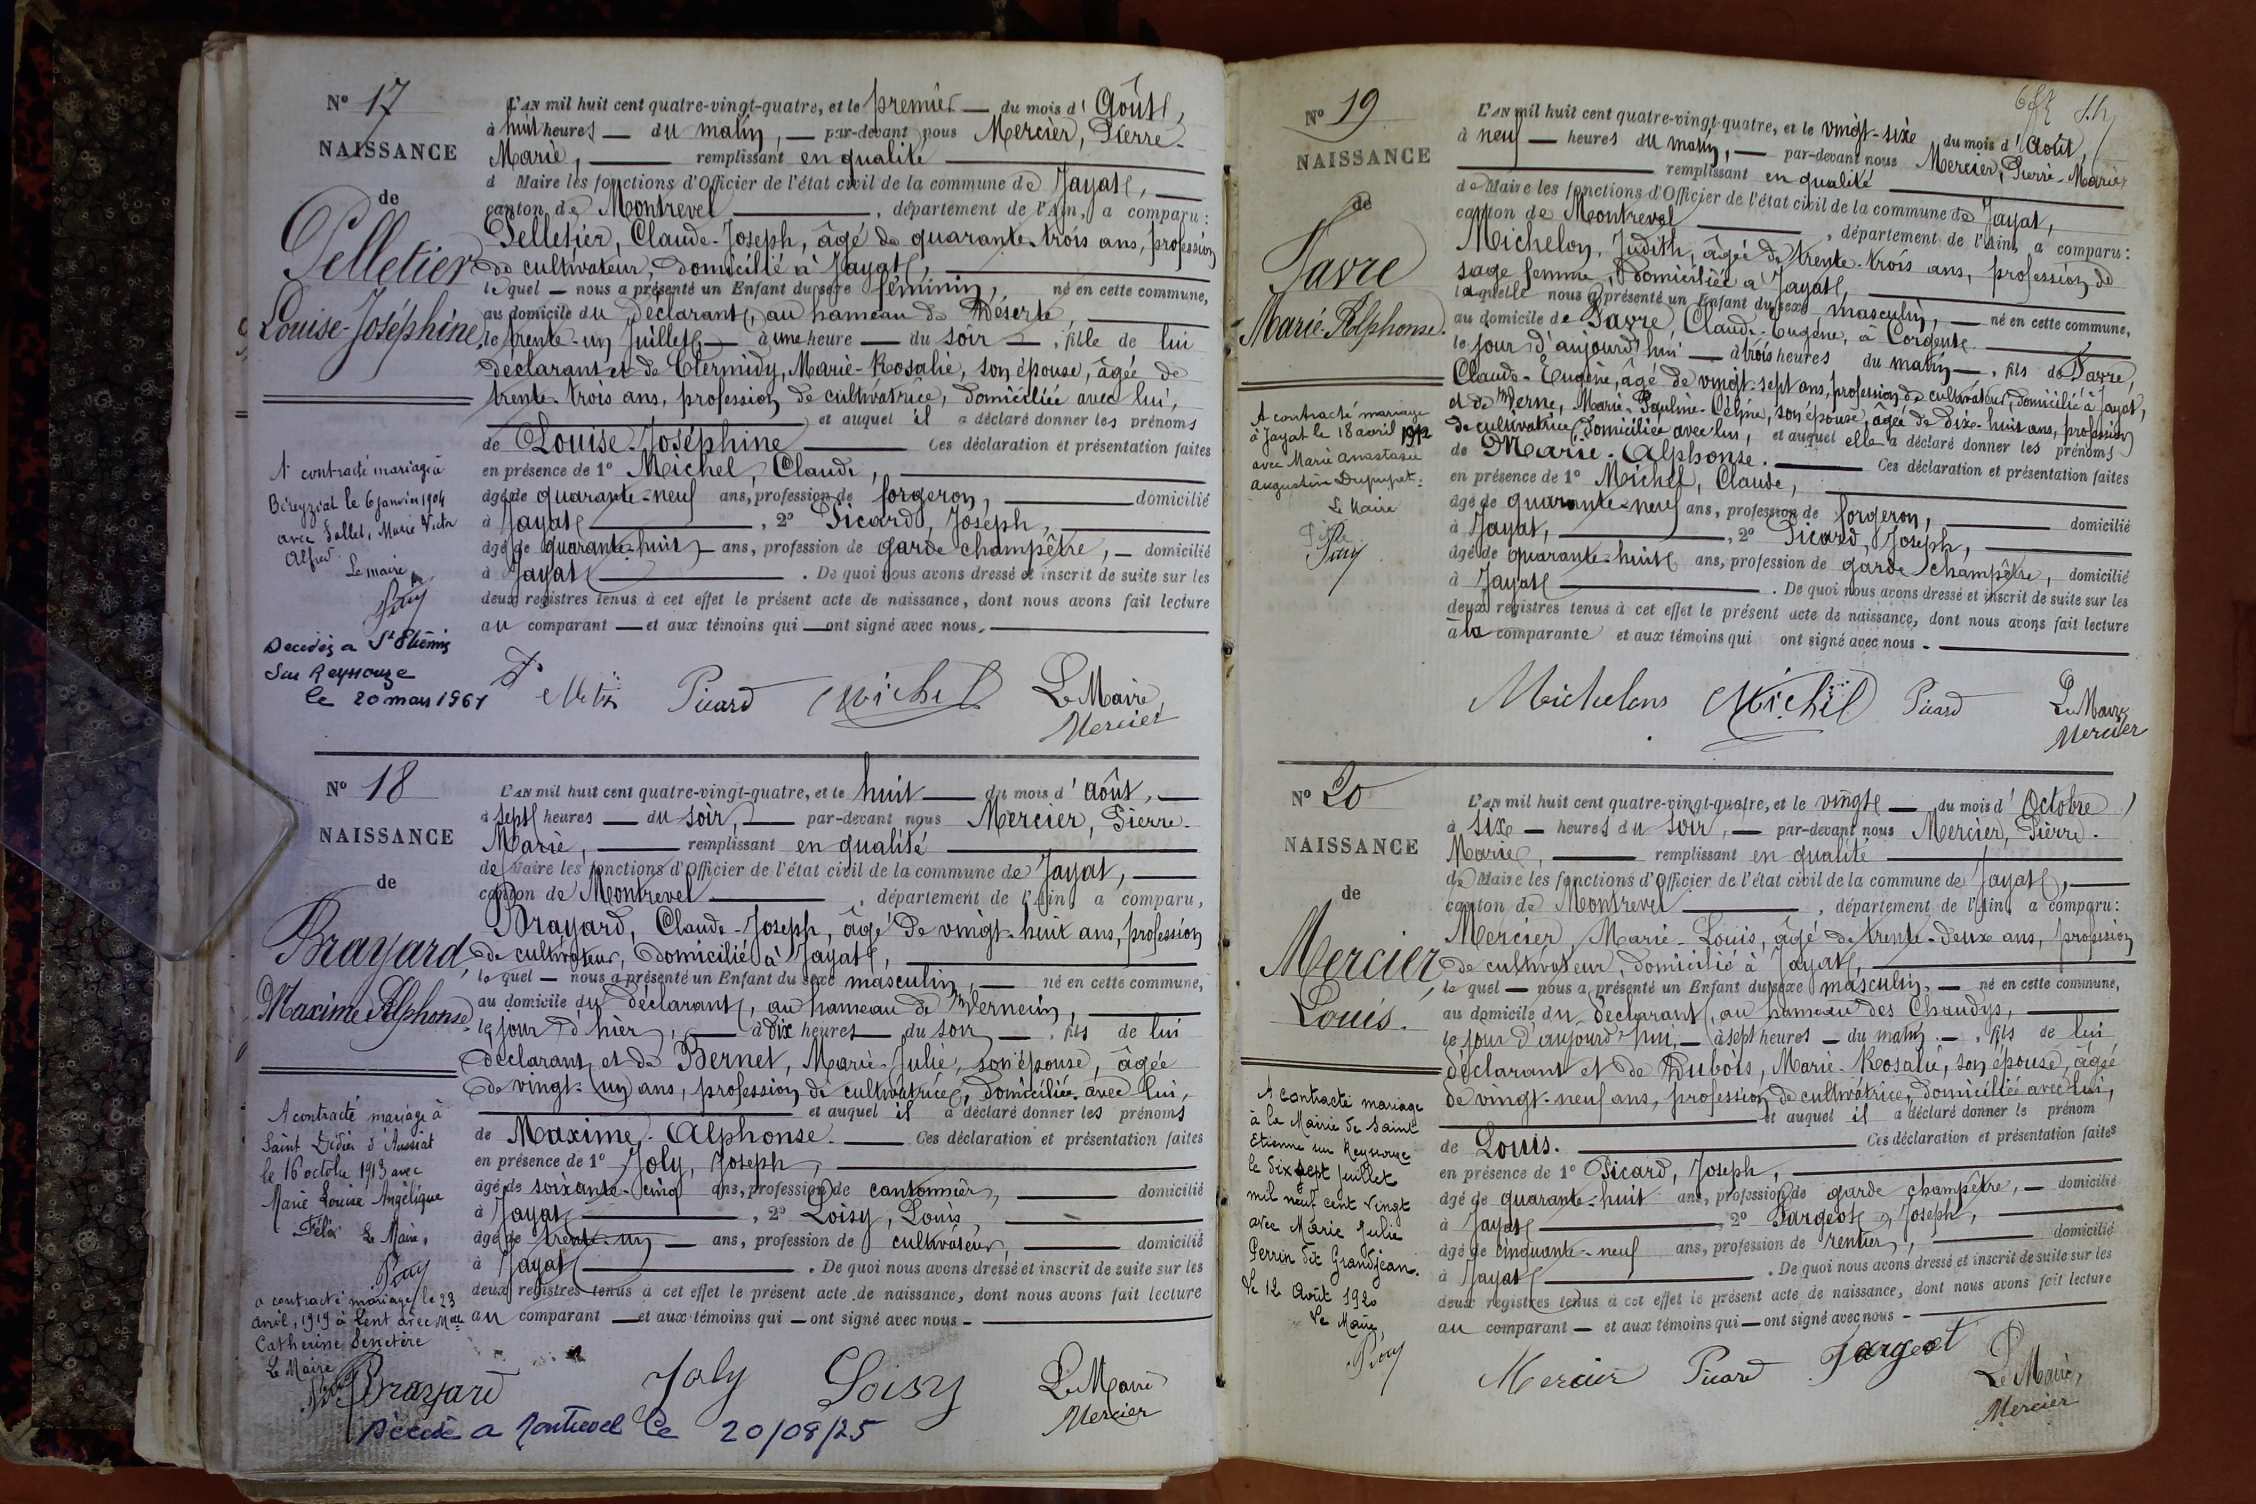 N° 17
NAISSANCE
de
Pelletier
Louise-Joséphine
A contracté mariage à
Béreyziat le 6 janvier 1904
avec Sallet, Marie Victor
Alfred
Le maire,
Décédée a St Etienne
Sur Reyssouze
le 20 mars 1961
L'AN mil huit cent quatre-vingt-quatre, et le premier — du mois d' Août,
à huit heures — du matin, — par-devant nous Mercier, Pierre-
Marie, — remplissant en qualité
d Maire les fonctions d'Officier de l'état civil de la commune de Jayat,
canton de Montrevel —, département de l'Ain, a comparu :
Pelletier, Claude-Joseph, âgé de quarante-trois ans, profession
de cultivateur, domicilié à Jayat, —
le quel — nous a présenté un Enfant du sexe féminin, né en cette commune,
au domicile du déclarant, au hameau de Déserte,
le trente-un Juillet — à une heure — du soir —, fille de lui
déclarant et de Clermidy, Marie-Rosalie, son épouse, âgée de
trente-trois ans, profession de cultivatrice, domiciliée avec lui,
— et auquel il a déclaré donner les prénoms
de Louise-Joséphine — Ces déclaration et présentation faites
en présence de 1° Michel, Claude,
âgé de quarante-neuf ans, profession de forgeron, — domicilié
à Jayat —, 2° Picard, Joseph,
âgé de quarante-huit — ans, profession de garde champêtre, — domicilié
à Jayat —. De quoi nous avons dressé et inscrit de suite sur les
deux registres tenus à cet effet le présent acte de naissance, dont nous avons fait lecture
au comparant — et aux témoins qui — ont signé avec nous. —
Picard Michel Le Maire,
Mercier
N° 18
NAISSANCE
de
Brayard,
Maxime Alphonse
A contracté mariage à
Saint Didier d'Aussiat
le 16 octobre 1913 avec
Marie Louise Angélique
Félix Le Maire,
a contracté mariage le 23
avril, 1919 à Lent avec Melle
Catherine Senetère
Le Maire
L'AN mil huit cent quatre-vingt-quatre, et le huit — du mois d' Août, —
à sept heures — du soir, — par-devant nous Mercier, Pierre-
Marie, — remplissant en qualité
de Maire les fonctions d'Officier de l'état civil de la commune de Jayat, —
canton de Montrevel —, département de l'Ain, a comparu,
Brayard, Claude-Joseph, âgé de vingt-huit ans, profession
de cultivateur, domicilié à Jayat,
le quel — nous a présenté un Enfant du sexe masculin, — né en cette commune,
au domicile du déclarant, au hameau de Vernecin,
le jour d'hier, — à dix heures — du soir —, fils de lui
déclarant et de Bernet, Marie-Julie, son épouse, âgée
de vingt-un ans, profession de cultivatrice, domiciliée avec lui,
— et auquel il a déclaré donner les prénoms
de Maxime-Alphonse. — Ces déclaration et présentation faites
en présence de 1° Joly, Joseph,
âgé de soixante-cinq ans, profession de cantonnier, — domicilié
à Jayat —, 2° Loisy, Louis,
âgé de trente-un — ans, profession de cultivateur, — domicilié
à Jayat —. De quoi nous avons dressé et inscrit de suite sur les
deux registres tenus à cet effet le présent acte de naissance, dont nous avons fait lecture
au comparant — et aux témoins qui — ont signé avec nous —
Brayard Joly Loisy Le Maire
Mercier
Décédé a Montrevel le 20/08/25
N° 19
NAISSANCE
de
Favre
Marie-Alphonse.
A contracté mariage
à Jayat le 18 avril 1912
avec Marie Anastasie
Augustine Dupupet.
Le Maire
L'AN mil huit cent quatre-vingt-quatre, et le vingt-six du mois d' Août,
à neuf — heures du matin, — par-devant nous Mercier, Pierre-Marie,
— remplissant en qualité
de Maire les fonctions d'Officier de l'état civil de la commune de Jayat,
canton de Montrevel —, département de l'Ain, a comparu :
Michelon, Judith, âgée de trente-trois ans, profession de
sage femme, domiciliée à Jayat,
laquelle nous a présenté un Enfant du sexe masculin, — né en cette commune,
au domicile de Favre, Claude-Eugène, à Corgente
le jour d'aujourd'hui — à trois heures du matin —, fils de Favre,
Claude-Eugène, âgé de vingt-sept ans, profession de cultivateur, domicilié à Jayat,
et de Verne, Marie-Pauline-Céline, son épouse, âgée de dix-huit ans, profession
de cultivatrice, domiciliée avec lui, et auquel elle a déclaré donner les prénoms
de Marie-Alphonse. — Ces déclaration et présentation faites
en présence de 1° Michel, Claude,
âgé de quarante-neuf ans, profession de forgeron, — domicilié
à Jayat, —, 2° Picard, Joseph,
âgé de quarante-huit ans, profession de garde champêtre, domicilié
à Jayat —. De quoi nous avons dressé et inscrit de suite sur les
deux registres tenus à cet effet le présent acte de naissance, dont nous avons fait lecture
à la comparante et aux témoins qui ont signé avec nous. —
Michelon Michel Picard Le Maire
Mercier
N° 20
NAISSANCE
de
Mercier,
Louis.
A contracté mariage
à la Mairie de Saint
Etienne sur Reyssouze
le dix sept juillet
mil neuf cent vingt
avec Marie Julie
Perrin dit Grandjean.
Le 12 Août 1920
Le Maire,
L'AN mil huit cent quatre-vingt-quatre, et le vingt — du mois d' Octobre,
à six — heures du soir, — par-devant nous Mercier, Pierre-
Marie, — remplissant en qualité
de Maire les fonctions d'Officier de l'état civil de la commune de Jayat, —
canton de Montrevel —, département de l'Ain, a comparu :
Mercier, Marie-Louis, âgé de trente-deux ans, profession
de cultivateur, domicilié à Jayat,
le quel — nous a présenté un Enfant du sexe masculin, — né en cette commune,
au domicile du déclarant, au hameau des Chaudys,
le jour d'aujourd'hui, — à sept heures — du matin —, fils de lui
déclarant et de Dubois, Marie-Rosalie, son épouse, âgée
de vingt-neuf ans, profession de cultivatrice, domiciliée avec lui,
— et auquel il a déclaré donner le prénom
de Louis. — Ces déclaration et présentation faites
en présence de 1° Picard, Joseph,
âgé de quarante-huit ans, profession de garde champêtre, — domicilié
à Jayat —, 2° Fargeot, Joseph,
âgé de cinquante-neuf ans, profession de rentier, — domicilié
à Jayat —. De quoi nous avons dressé et inscrit de suite sur les
deux registres tenus à cet effet le présent acte de naissance, dont nous avons fait lecture
au comparant — et aux témoins qui — ont signé avec nous —
Mercier Picard Fargeot Le Maire,
Mercier